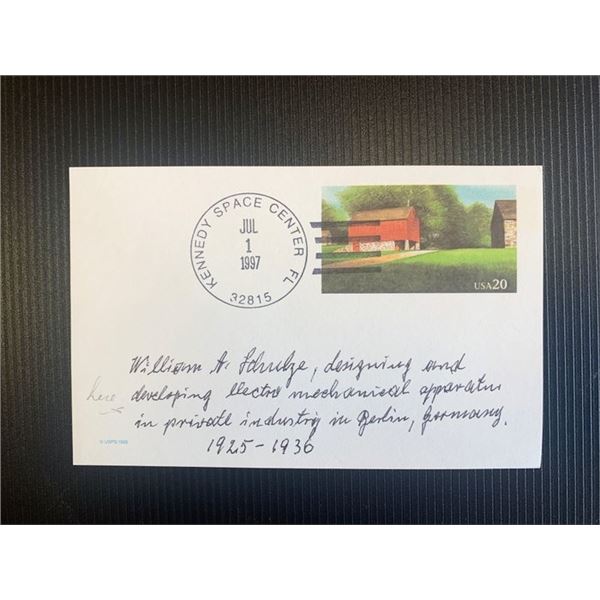 KENNEDY SPACE CENTER FL
JUL
1
1997
32815
USA20
William A. Schulze, designing and
here developing electro mechanical apparatus
in private industry in Berlin, Germany.
1925-1936